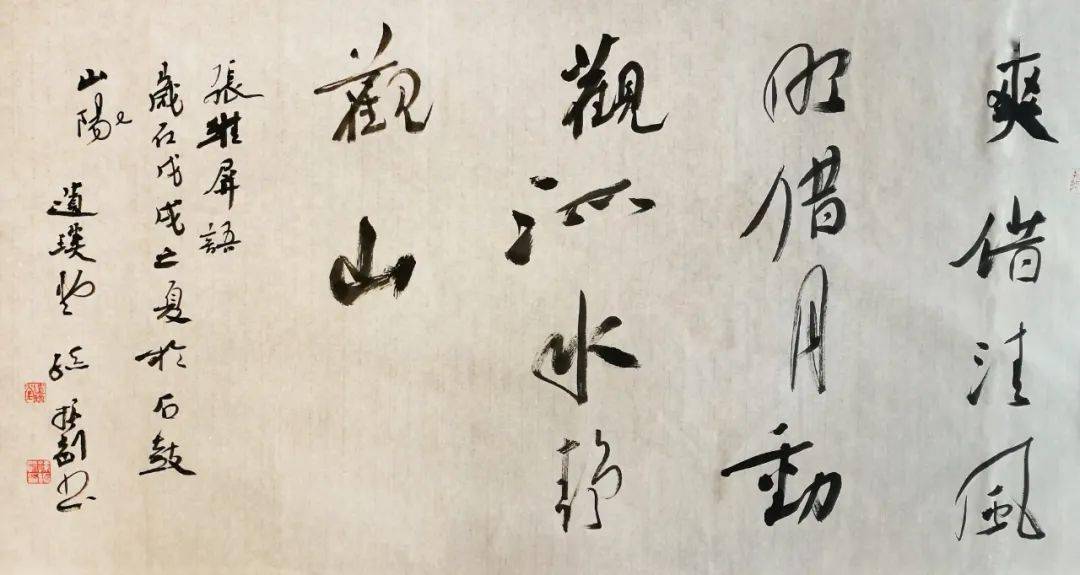 爽借清風
明借月動
觀流水靜
觀山
張維屏語
歲在戊戌之夏於石鼓
山之陽
書